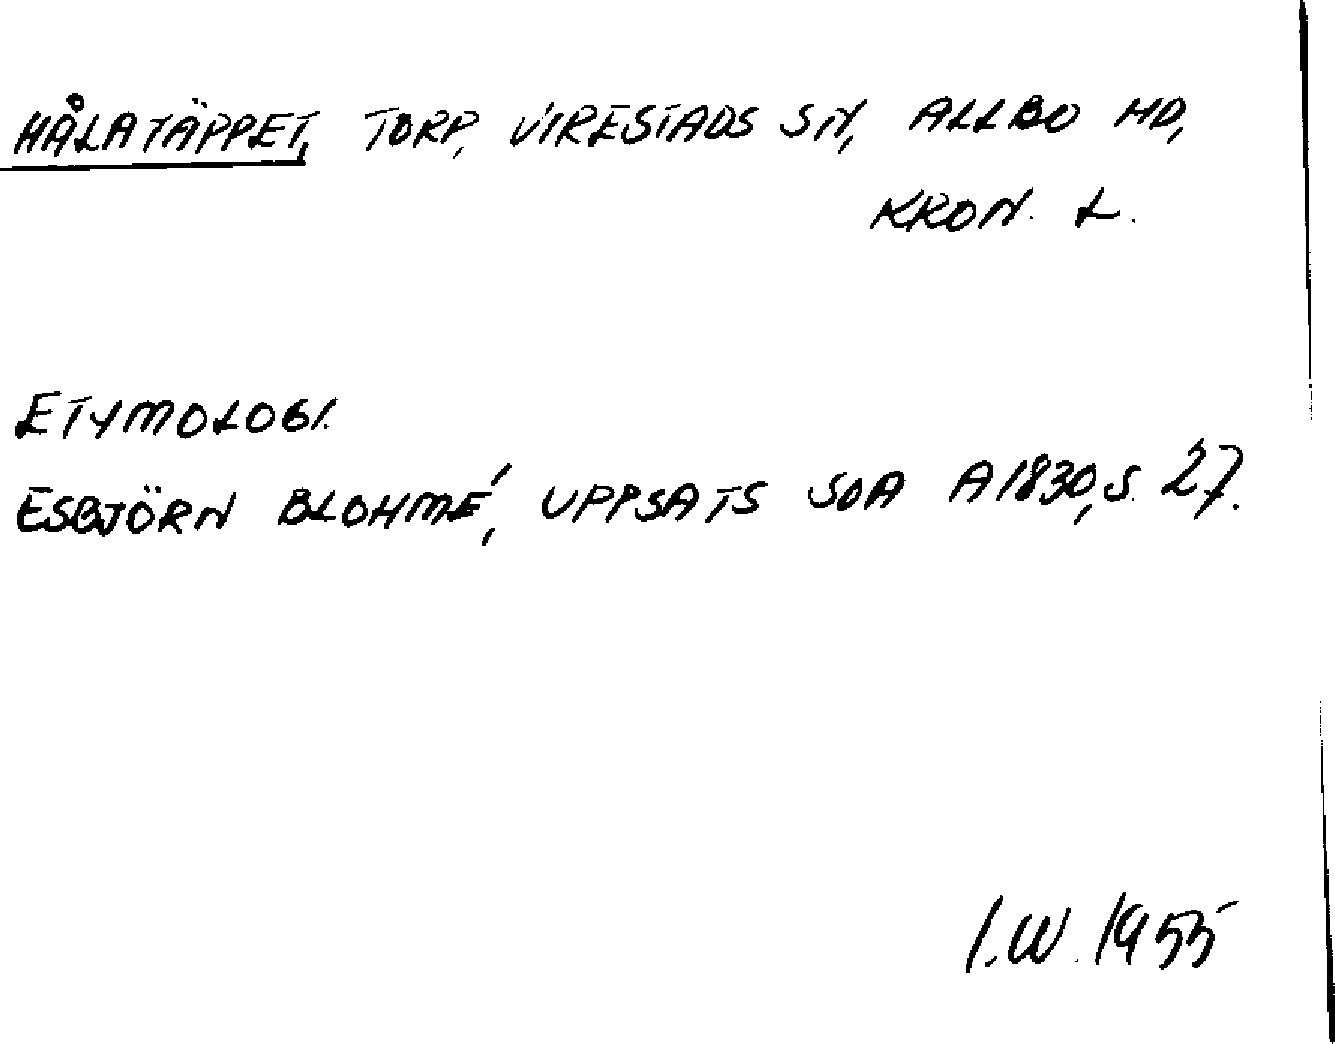 HÅLATÄPPET, TORP, VIRESTADS SN, ALLBO HD,
KRON. L.
ETYMOLOGI.
ESBJÖRN BLOHMÉ, UPPSATS SOA A1830, S. 27.
I.W. 1955